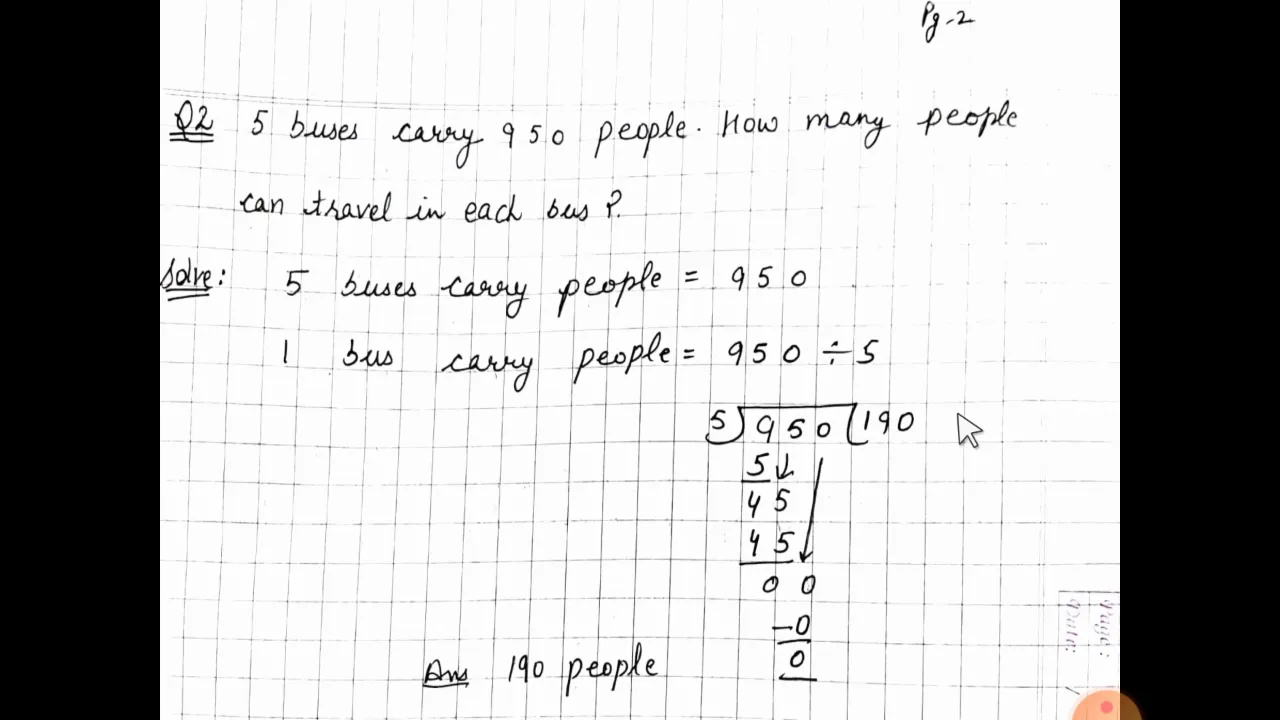 Pg-2
Q2 5 buses carry 950 people. How many people
can travel in each bus ?
Solve: 5 buses carry people = 950
1 bus carry people = 950 ÷ 5
5 ) 950 ( 190
5
45
45
0 0
-0
0
Ans 190 people
Page:
Date: